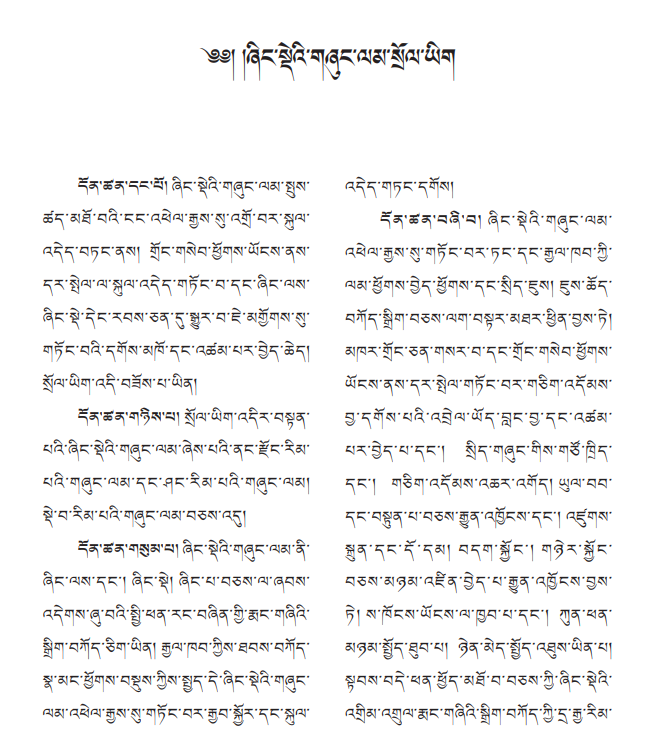 ༄༅། །ཞིང་སྡེའི་གཞུང་ལམ་སྲོལ་ཡིག
དོན་ཚན་དང་པོ། ཞིང་སྡེའི་གཞུང་ལམ་སྤུས་
ཚད་མཐོ་བའི་ངང་འཕེལ་རྒྱས་སུ་འགྲོ་བར་སྐུལ་
འདེད་བཏང་ནས། གྲོང་གསེབ་ཕྱོགས་ཡོངས་ནས་
དར་སྤེལ་ལ་སྐུལ་འདེད་གཏོང་བ་དང་ཞིང་ལས་
ཞིང་སྡེ་དེང་རབས་ཅན་དུ་སྒྱུར་བ་ཇེ་མགྱོགས་སུ་
གཏོང་བའི་དགོས་མཁོ་དང་འཚམ་པར་བྱེད་ཆེད།
སྲོལ་ཡིག་འདི་བཟོས་པ་ཡིན།
དོན་ཚན་གཉིས་པ། སྲོལ་ཡིག་འདིར་བསྟན་
པའི་ཞིང་སྡེའི་གཞུང་ལམ་ཞེས་པའི་ནང་རྫོང་རིམ་
པའི་གཞུང་ལམ་དང་ཤང་རིམ་པའི་གཞུང་ལམ།
སྡེ་བ་རིམ་པའི་གཞུང་ལམ་བཅས་འདུ།
དོན་ཚན་གསུམ་པ། ཞིང་སྡེའི་གཞུང་ལམ་ནི་
ཞིང་ལས་དང་། ཞིང་སྡེ། ཞིང་པ་བཅས་ལ་ཞབས་
འདེགས་ཞུ་བའི་སྤྱི་ཕན་རང་བཞིན་གྱི་རྨང་གཞིའི་
སྒྲིག་བཀོད་ཅིག་ཡིན། རྒྱལ་ཁབ་ཀྱིས་ཐབས་བཀོད་
སྣ་མང་ཕྱོགས་བསྡུས་ཀྱིས་སྤྱད་དེ་ཞིང་སྡེའི་གཞུང་
ལམ་འཕེལ་རྒྱས་སུ་གཏོང་བར་རྒྱབ་སྐྱོར་དང་སྐུལ་
འདེད་གཏང་དགོས།
དོན་ཚན་བཞི་བ། ཞིང་སྡེའི་གཞུང་ལམ་
འཕེལ་རྒྱས་སུ་གཏོང་བར་ཏང་དང་རྒྱལ་ཁབ་ཀྱི་
ལམ་ཕྱོགས་བྱེད་ཕྱོགས་དང་སྲིད་ཇུས། ཇུས་ཆོད་
བཀོད་སྒྲིག་བཅས་ལག་བསྟར་མཐར་ཕྱིན་བྱས་ཏེ།
མཁར་གྲོང་ཅན་གསར་བ་དང་གྲོང་གསེབ་ཕྱོགས་
ཡོངས་ནས་དར་སྤེལ་གཏོང་བར་གཅིག་འདོམས་
བྱ་དགོས་པའི་འབྲེལ་ཡོད་བླང་བྱ་དང་འཚམ་
པར་བྱེད་པ་དང་། སྲིད་གཞུང་གིས་གཙོ་ཁྲིད་
དང་། གཅིག་འདོམས་འཆར་འགོད། ཡུལ་བབ་
དང་བསྟུན་པ་བཅས་རྒྱུན་འཁྱོངས་དང་། འཛུགས་
སྐྲུན་དང་དོ་དམ། བདག་སྐྱོང་། གཉེར་སྐྱོང་
བཅས་མཉམ་འཛིན་བྱེད་པ་རྒྱུན་འཁྱོངས་བྱས་
ཏེ། ས་ཁོངས་ཡོངས་ལ་ཁྱབ་པ་དང་། ཀུན་ཕན་
མཉམ་སྤྱོད་ཐུབ་པ། ཉེན་མེད་སྤྱོད་འཐུས་ཡིན་པ།
སྟབས་བདེ་ཕན་ཕྱོད་མཐོ་བ་བཅས་ཀྱི་ཞིང་སྡེའི་
འགྲིམ་འགྲུལ་རྨང་གཞིའི་སྒྲིག་བཀོད་ཀྱི་དྲ་རྒྱ་རིམ་